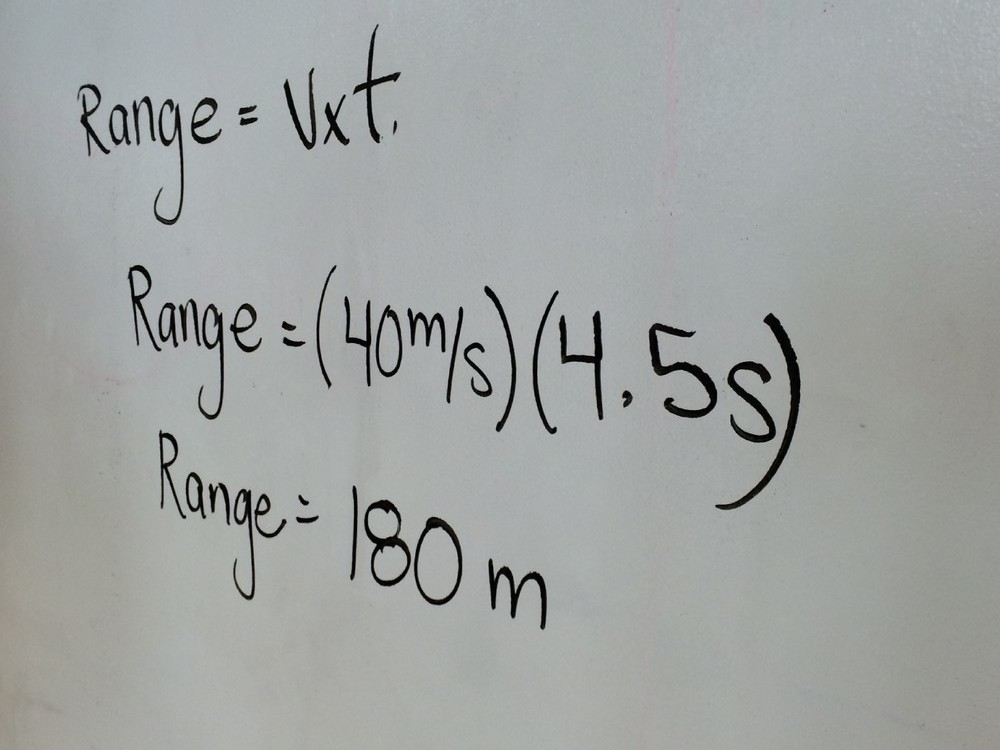 Range = Vxt.
Range = (40m/s)(4.5s)
Range = 180 m